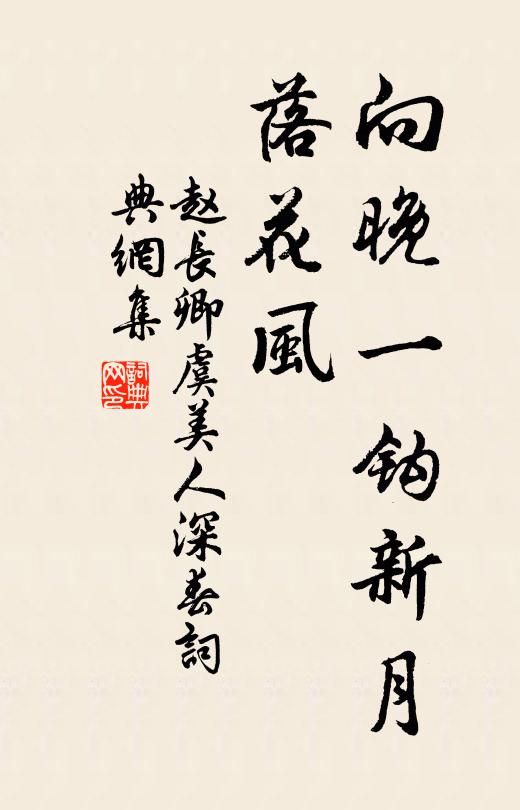 向晚一钩新月
落花風
赵長卿虞美人深春詞
典網集
詞典网印